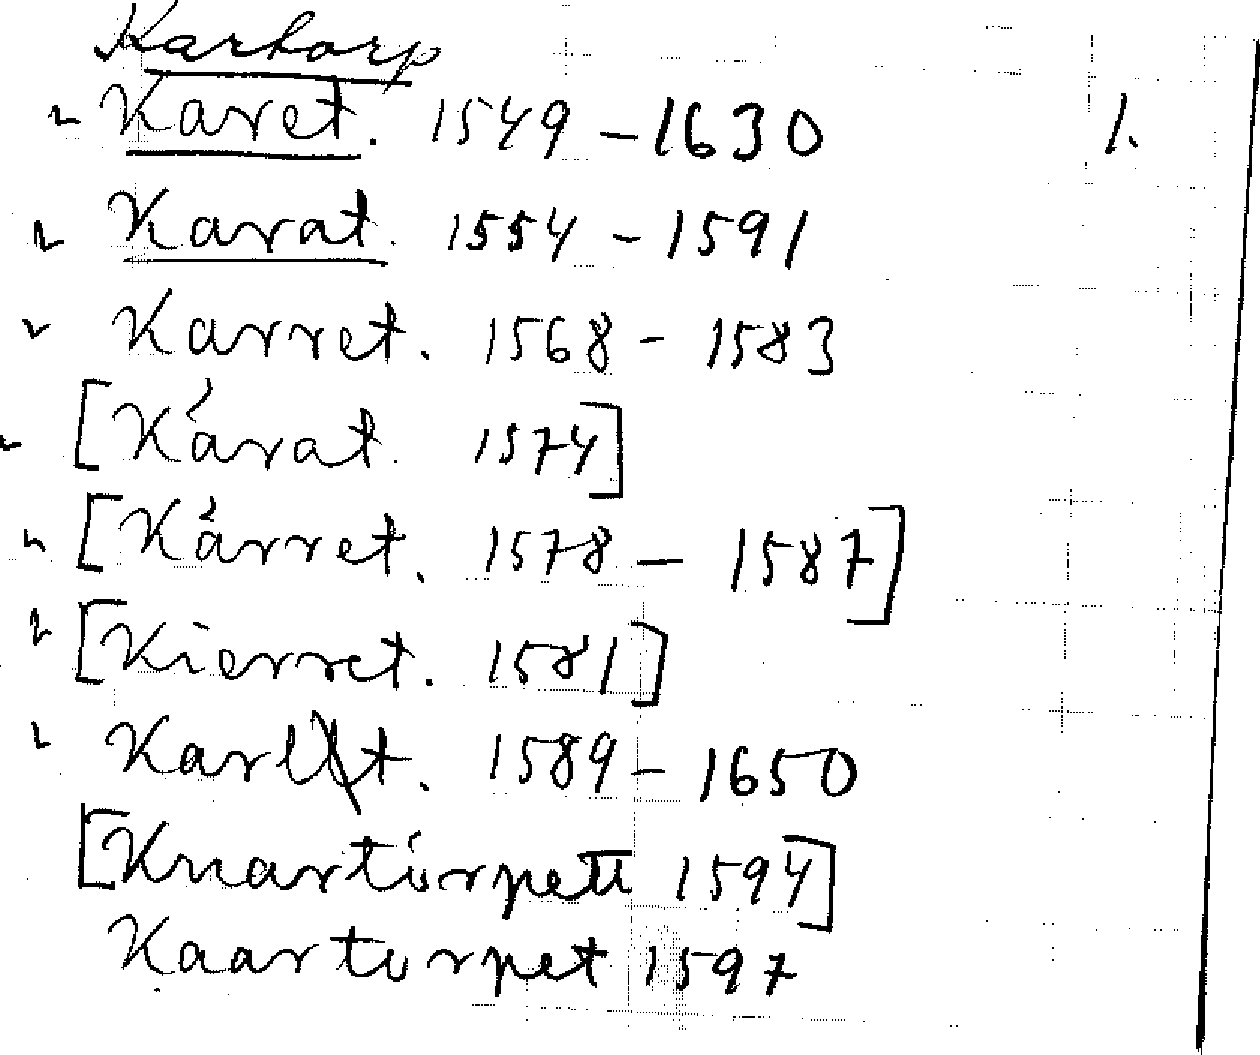 Kartorp
" Karet. 1549 - 1630 1.
" Karat. 1554 - 1591
" Karret. 1568 - 1583
" [Kárat. 1574]
" [Kárret. 1578 - 1587]
" [Kierret. 1581]
" 1589 - 1650
[Knartörpett 1594]
Kaartorpet 1597